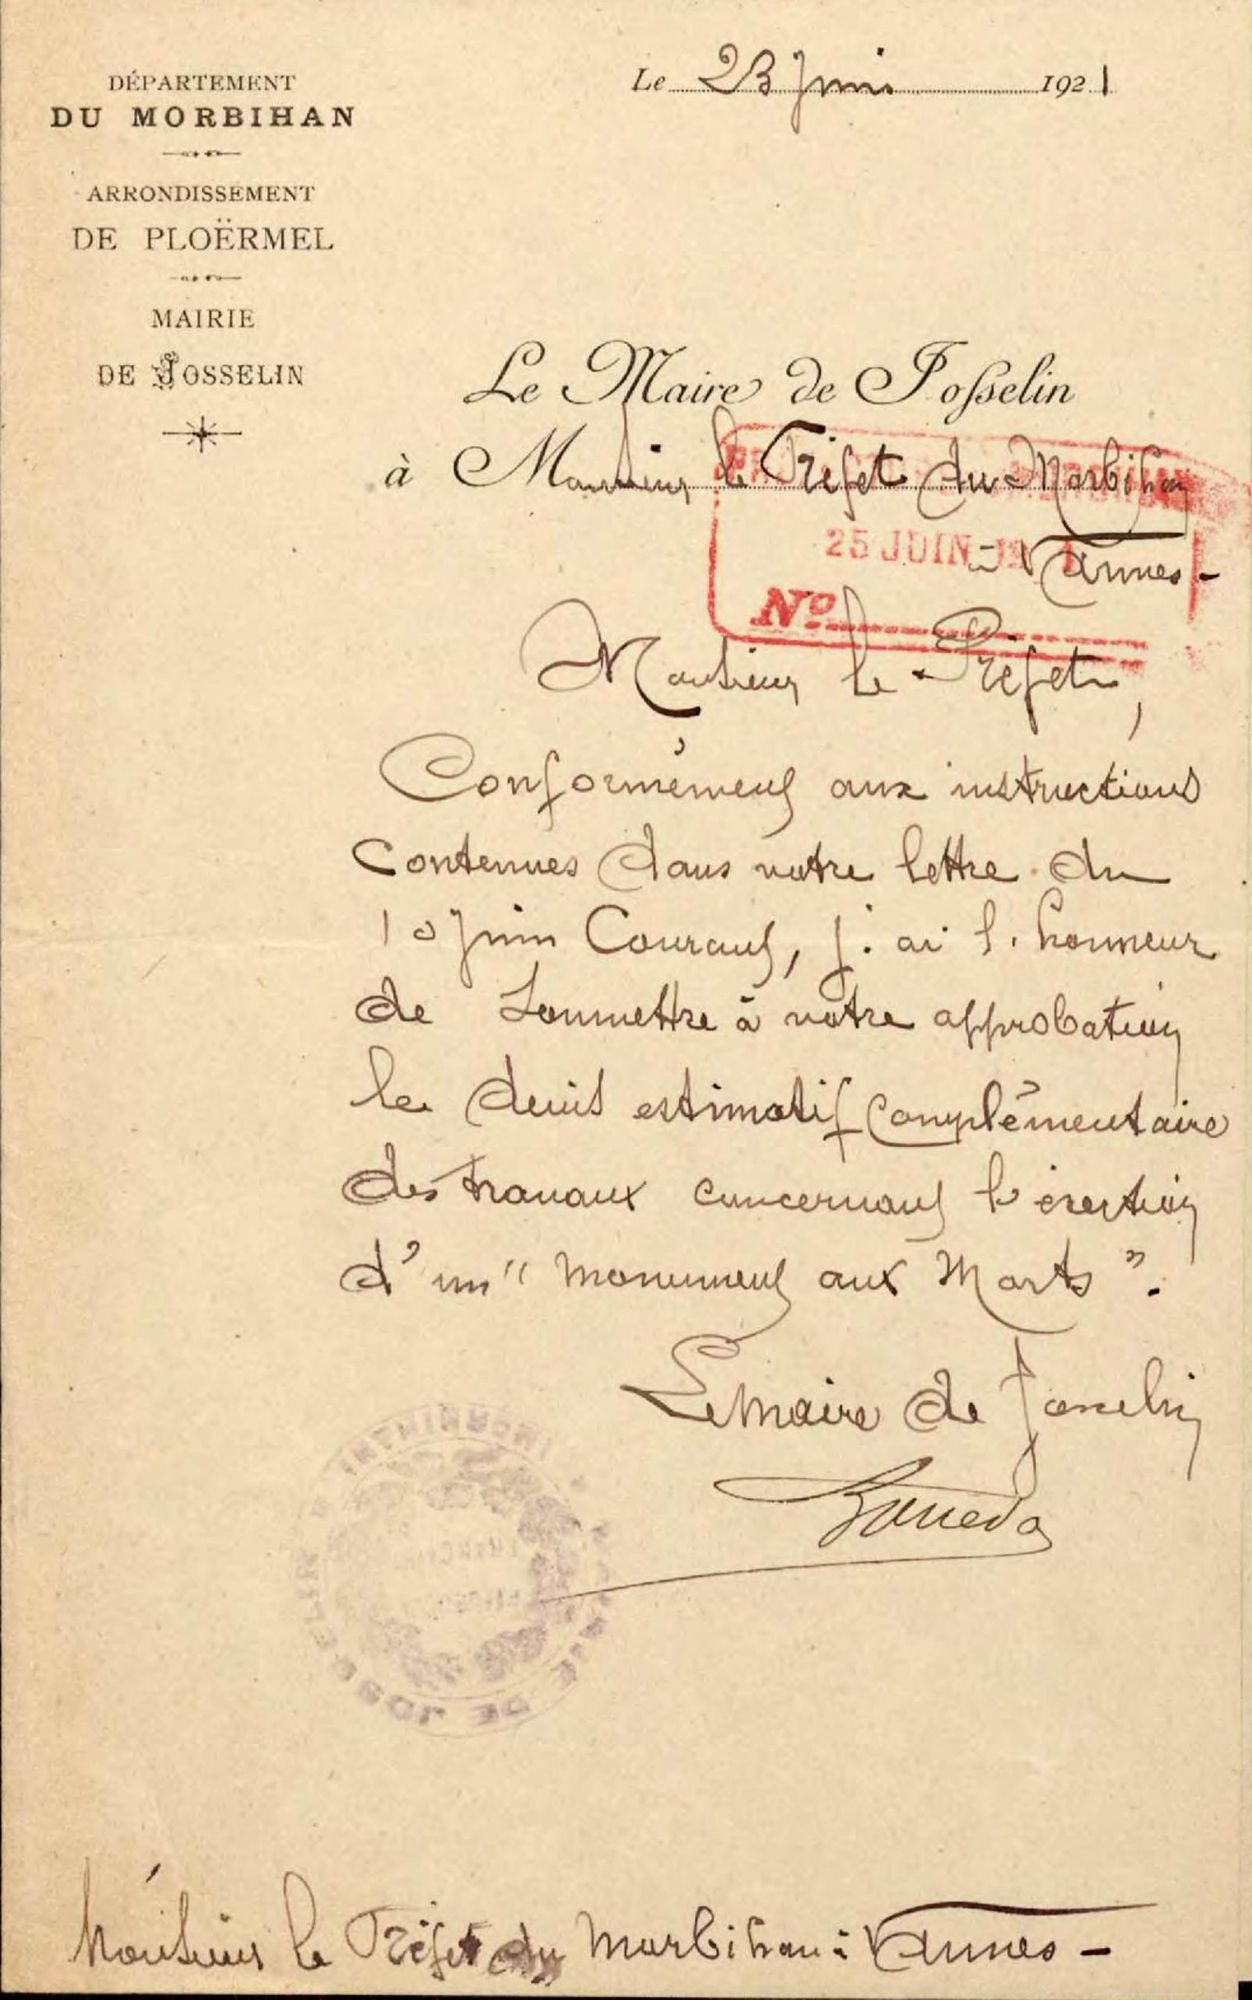 DÉPARTEMENT
DU MORBIHAN
ARRONDISSEMENT
DE PLOËRMEL
MAIRIE
DE JOSSELIN
Le 23 Juin 1921
Le Maire de Josselin
à Monsieur le Préfet du Morbihan
25 JUIN
à Vannes -
No
Monsieur le Préfet,
Conformément aux instructions
contenues dans votre lettre du
10 Juin Courant, j'ai l'honneur
de soumettre à votre approbation
le devis estimatif complémentaire
des travaux concernant l'érection
d'un "Monument aux Morts".
Le Maire de Josselin
MAIRIE DE JOSSELIN
Monsieur le Préfet du Morbihan à Vannes -